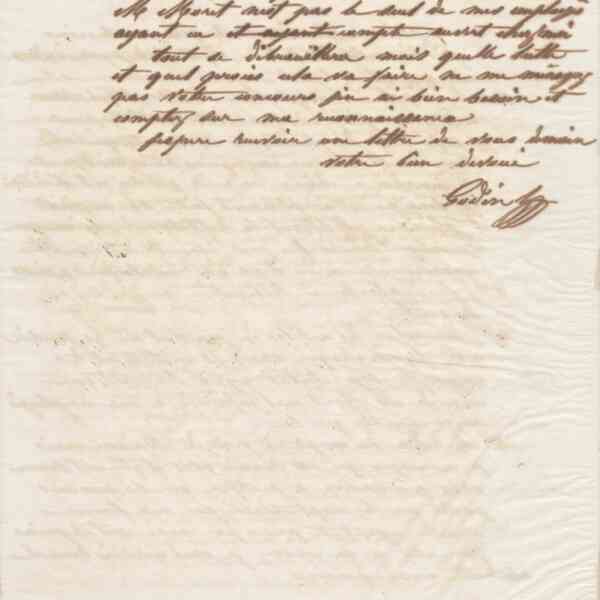 M Moret n'est pas le seul de mes employés
ayant eu et ayant compte ouvert chez moi
tout se débrouillera mais quelle lutte
et quel procès cela va faire ne me ménagez
pas votre concours j'en ai bien besoin et
comptez sur ma reconnaissance
j'espère recevoir une lettre de vous demain
votre bien dévoué
Godin